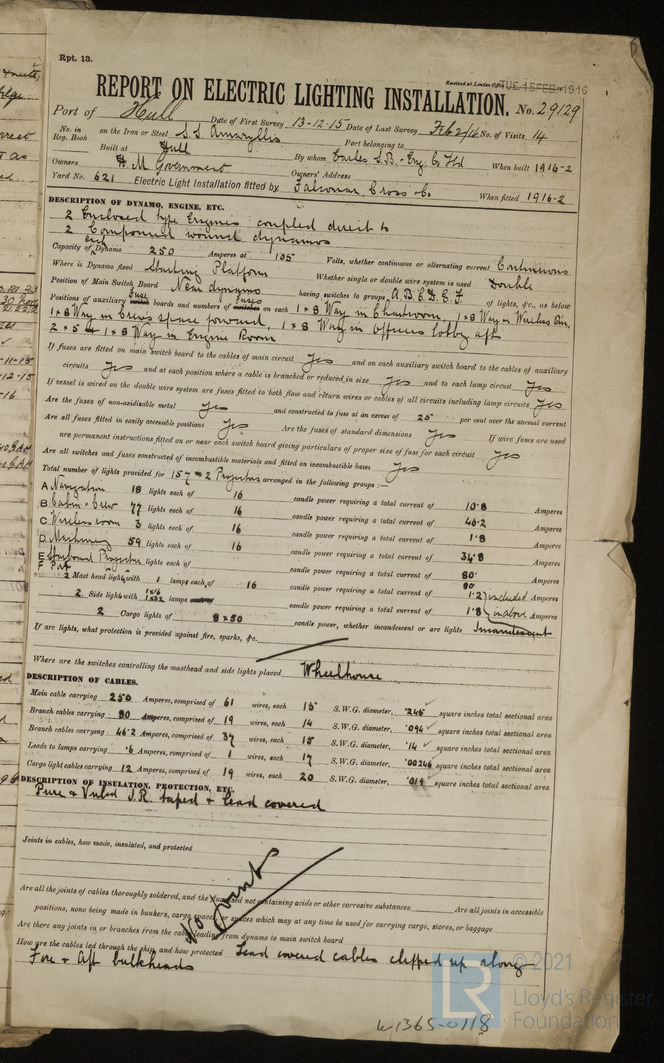 Rpt. 13.
Received at London Office TUE 15 FEB 1916
REPORT ON ELECTRIC LIGHTING INSTALLATION. No. 29129
Port of Hull Date of First Survey 13-12-15 Date of Last Survey Feb 2/16 No. of Visits 14
No. in Reg. Book on the Iron or Steel S.S. Amaryllis Port belonging to
Built at Hull By whom Earles S.B. & Eng. Co Ltd When built 1916-2
Owners H.M. Government Owners' Address
Yard No. 621 Electric Light Installation fitted by Falconar Cross & Co. When fitted 1916-2
DESCRIPTION OF DYNAMO, ENGINE, ETC.
2 Enclosed type Engines coupled direct to
2 Compound wound dynamos
Capacity of each Dynamo 250 Amperes at 105 Volts, whether continuous or alternating current Continuous
Where is Dynamo fixed Starting Platform Whether single or double wire system is used Double
Position of Main Switch Board Near dynamo having switches to groups A. B. C. D. E. F of lights, &c., as below
Positions of auxiliary Fuse switch boards and numbers of fuses switches on each 1 x 8 Way in Chartroom, 1 x 8 Way in Wireless Rm,
1 x 8 Way in Crews space forward, 1 x 8 Way in Officers lobby aft
2 x 5 & 1 x 8 Way in Engine Room
If fuses are fitted on main switch board to the cables of main circuit Yes and on each auxiliary switch board to the cables of auxiliary
circuits Yes and at each position where a cable is branched or reduced in size Yes and to each lamp circuit Yes
If vessel is wired on the double wire system are fuses fitted to both flow and return wires or cables of all circuits including lamp circuits Yes
Are the fuses of non-oxidizable metal Yes and constructed to fuse at an excess of 25 per cent over the normal current
Are all fuses fitted in easily accessible positions Yes Are the fuses of standard dimensions Yes If wire fuses are used
are permanent instructions fitted on or near each switch board giving particulars of proper size of fuse for each circuit Yes
Are all switches and fuses constructed of incombustible materials and fitted on incombustible bases Yes
Total number of lights provided for 157 & 2 Projectors arranged in the following groups :—
A Navigation 18 lights each of 16 candle power requiring a total current of 10.8 Amperes
B Cabin & Crew 77 lights each of 16 candle power requiring a total current of 46.2 Amperes
C Wireless room 3 lights each of 16 candle power requiring a total current of 1.8 Amperes
D Machinery 59 lights each of 16 candle power requiring a total current of 34.8 Amperes
E Starboard Projector lights each of candle power requiring a total current of 80. Amperes
F Port " 80
2 Mast head lights with 1 lamps each of 16 candle power requiring a total current of 1.2 included Amperes
2 Side lights with 1x16 1x32 lamps each of candle power requiring a total current of 1.8 in above Amperes
2 Cargo lights of 8 x 50 candle power, whether incandescent or arc lights Incandescent
If arc lights, what protection is provided against fire, sparks, &c.
Where are the switches controlling the masthead and side lights placed Wheelhouse
DESCRIPTION OF CABLES.
Main cable carrying 250 Amperes, comprised of 61 wires, each 15 S.W.G. diameter, .245 square inches total sectional area
Branch cables carrying 80 Amperes, comprised of 19 wires, each 14 S.W.G. diameter, .094 square inches total sectional area
Branch cables carrying 46.2 Amperes, comprised of 37 wires, each 15 S.W.G. diameter, .14 square inches total sectional area
Leads to lamps carrying .6 Amperes, comprised of 1 wires, each 17 S.W.G. diameter, .00246 square inches total sectional area
Cargo light cables carrying 12 Amperes, comprised of 19 wires, each 20 S.W.G. diameter, .019 square inches total sectional area
DESCRIPTION OF INSULATION, PROTECTION, ETC.
Pure & Vulcd I.R. taped & lead covered
Joints in cables, how made, insulated, and protected
No joints
Are all the joints of cables thoroughly soldered, and the flux used not containing acids or other corrosive substances Are all joints in accessible
positions, none being made in bunkers, cargo spaces, or spaces which may at any time be used for carrying cargo, stores, or baggage
Are there any joints in or branches from the cable leading from dynamo to main switch board
How are the cables led through the ship, and how protected Lead covered cables clipped up along
Fore & Aft bulkheads
© 2021
LR Lloyd's Register
Foundation
W1365-0118